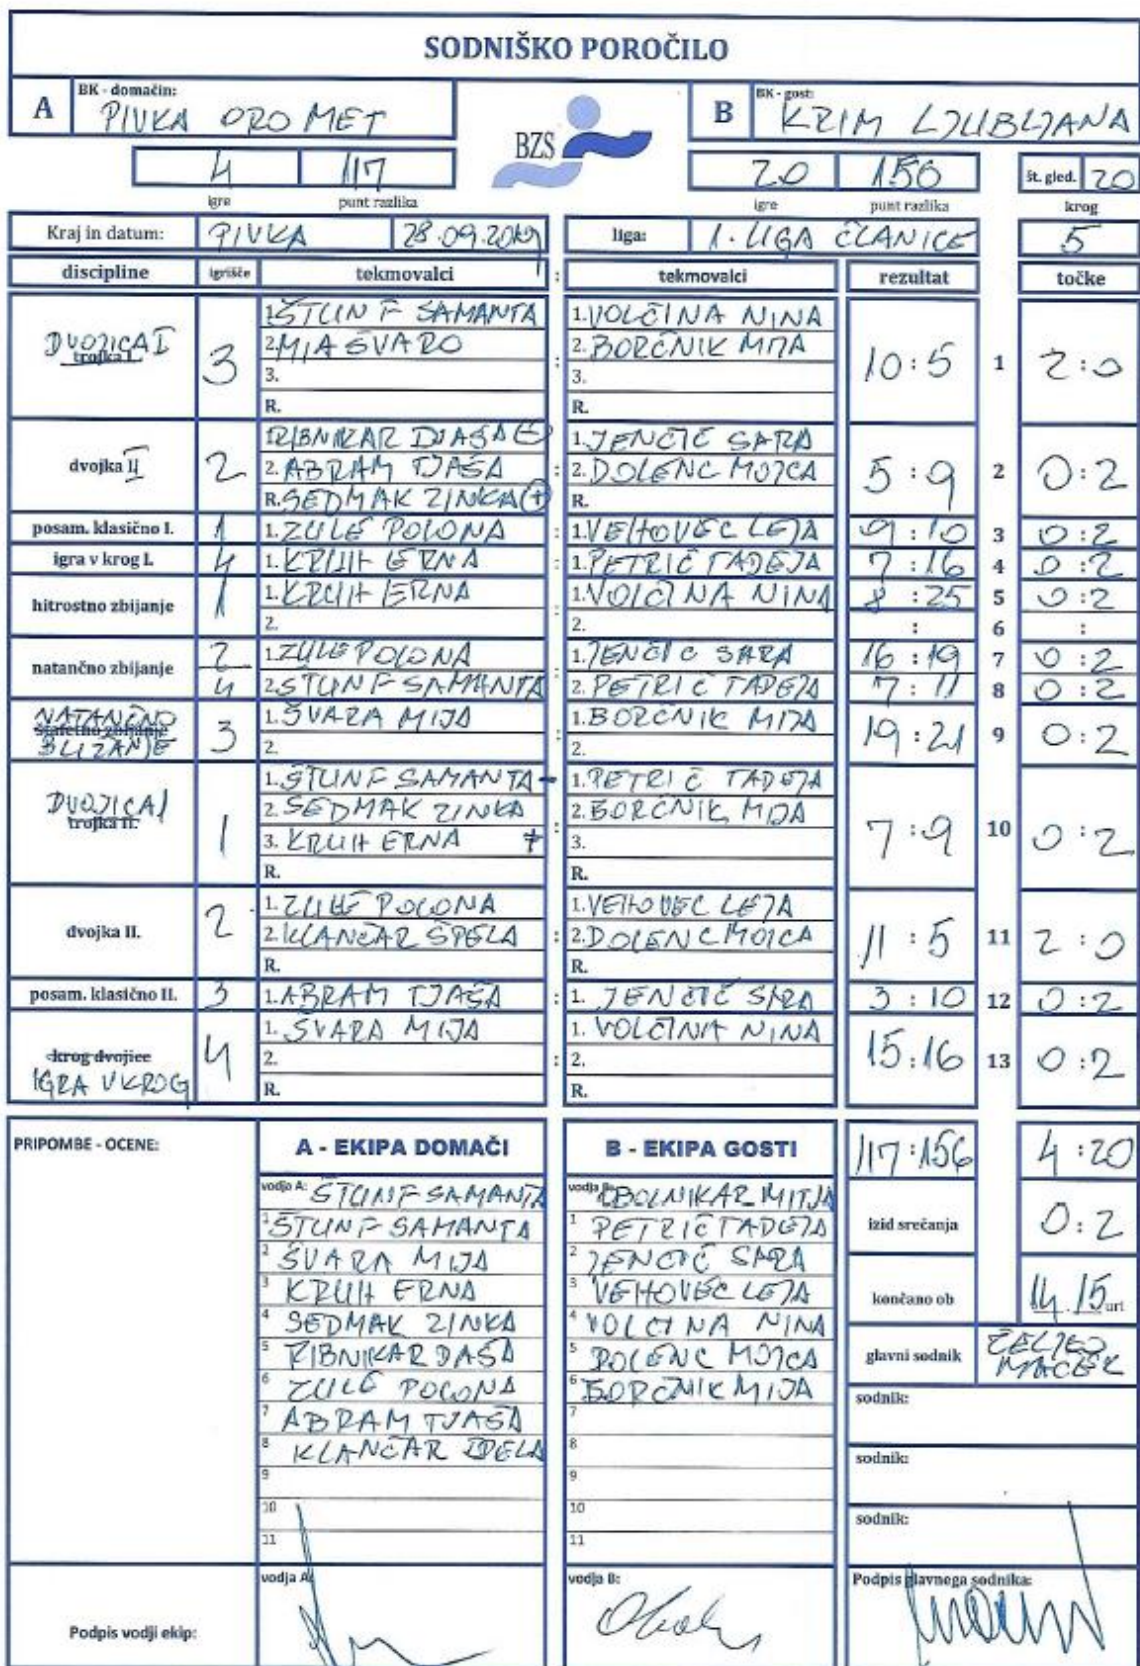 SODNIŠKO POROČILO
A BK - domačin: PIVKA ORO MET
BZS
B BK - gost: KRIM LJUBLJANA
4 117
igre punt razlika
20 156
igre punt razlika
št. gled. 20
krog
Kraj in datum: PIVKA 28.09.2019
liga: 1. LIGA ČLANICE 5
discipline igrišče tekmovalci : tekmovalci rezultat točke
DVOJICA I
trojka I.
3
1. ŠTUNF SAMANTA : 1. VOLČINA NINA 10:5 1 2:0
2. MIA ŠVARO 2. BORČNIK MIJA
3. 3.
R. R.
dvojka II 2
RIBNIKAR DJAŠA (-) : 1. JENČIČ SARA 5:9 2 0:2
2. ABRAM TJAŠA 2. DOLENC MOJCA
R. SEDMAK ZINKA (+) R.
posam. klasično I. 1 1. ZULE POLONA : 1. VEHOVEC LEJA 9:10 3 0:2
igra v krog I. 4 1. KRUH ERNA : 1. PETRIČ TADEJA 7:16 4 0:2
hitrostno zbijanje 1 1. KRUH ERNA : 1. VOLČINA NINA 8:25 5 0:2
2. : 6 :
natančno zbijanje 2 1. ZULE POLONA : 1. JENČIČ SARA 16:19 7 0:2
4 2. ŠTUNF SAMANTA 2. PETRIČ TADEJA 7:11 8 0:2
NATANČNO
štafetno zbijanje
BLIŽANJE
3 1. ŠVARA MIJA : 1. BORČNIK MIJA 19:21 9 0:2
2. 2.
DVOJICA I
trojka II.
1
1. ŠTUNF SAMANTA - : 1. PETRIČ TADEJA 7:9 10 0:2
2. SEDMAK ZINKA 2. BORČNIK MIJA
3. KRUH ERNA + 3.
R. R.
dvojka II. 2 1. ZULE POLONA : 1. VEHOVEC LEJA 11:5 11 2:0
2. KLANČAR ŠPELA 2. DOLENC MOJCA
R. R.
posam. klasično II. 3 1. ABRAM TJAŠA : 1. JENČIČ SARA 3:10 12 0:2
krog dvojice
IGRA V KROG
4 1. ŠVARA MIJA : 1. VOLČINA NINA 15:16 13 0:2
2. 2.
R. R.
PRIPOMBE - OCENE:
A - EKIPA DOMAČI
vodja A: ŠTUNF SAMANTA
1 ŠTUNF SAMANTA
2 ŠVARA MIJA
3 KRUH ERNA
4 SEDMAK ZINKA
5 RIBNIKAR DAŠA
6 ZULE POLONA
7 ABRAM TJAŠA
8 KLANČAR ŠPELA
9
10
11
B - EKIPA GOSTI
vodja B: OBOLNIKAR MITJA
1 PETRIČ TADEJA
2 JENČIČ SARA
3 VEHOVEC LEJA
4 VOLČINA NINA
5 DOLENC MOJCA
6 BORČNIK MIJA
7
8
9
10
11
117:156 4:20
izid srečanja 0:2
končano ob 14.15 uri
glavni sodnik ŽELJKO MAČEK
sodnik:
sodnik:
sodnik:
Podpis vodji ekip:
vodja A:
vodja B:
Podpis glavnega sodnika: